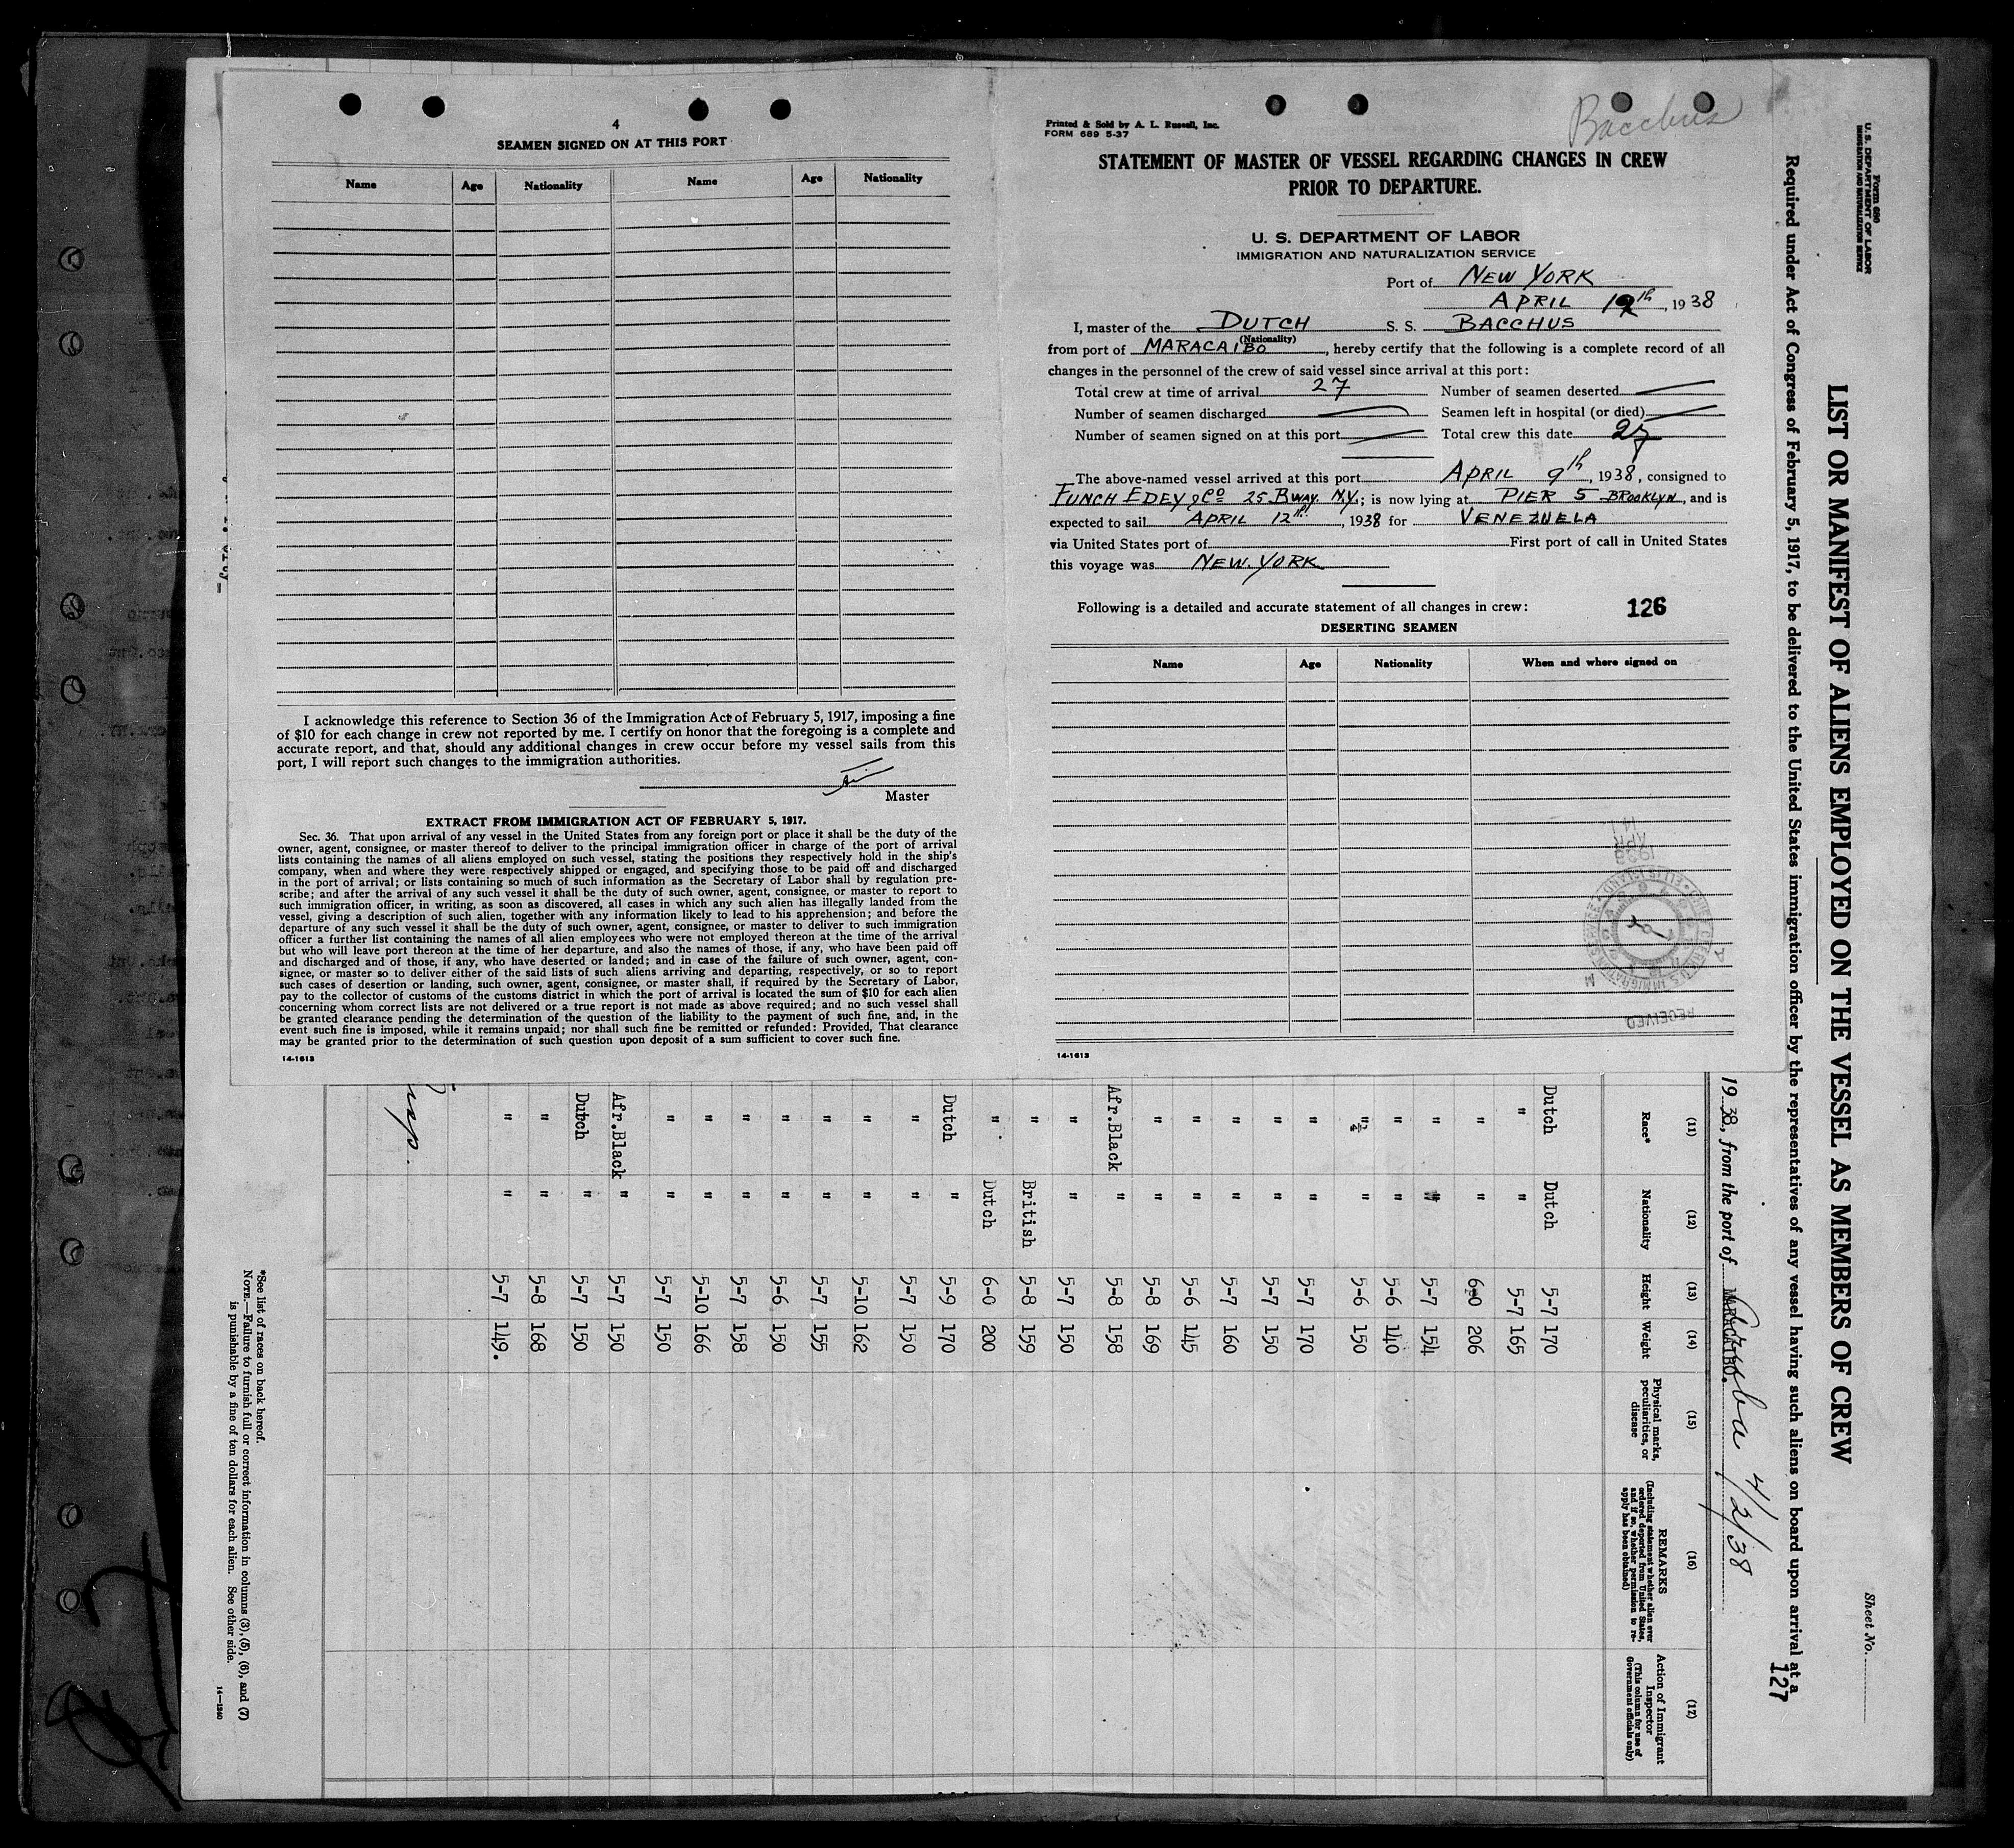 4
SEAMEN SIGNED ON AT THIS PORT
Name Age Nationality Name Age Nationality
I acknowledge this reference to Section 36 of the Immigration Act of February 5, 1917, imposing a fine
of $10 for each change in crew not reported by me. I certify on honor that the foregoing is a complete and
accurate report, and that, should any additional changes in crew occur before my vessel sails from this
port, I will report such changes to the immigration authorities.
Master
EXTRACT FROM IMMIGRATION ACT OF FEBRUARY 5, 1917.
Sec. 36. That upon arrival of any vessel in the United States from any foreign port or place it shall be the duty of the
owner, agent, consignee, or master thereof to deliver to the principal immigration officer in charge of the port of arrival
lists containing the names of all aliens employed on such vessel, stating the positions they respectively hold in the ship's
company, when and where they were respectively shipped or engaged, and specifying those to be paid off and discharged
in the port of arrival; or lists containing so much of such information as the Secretary of Labor shall by regulation pre-
scribe; and after the arrival of any such vessel it shall be the duty of such owner, agent, consignee, or master to report to
such immigration officer, in writing, as soon as discovered, all cases in which any such alien has illegally landed from the
vessel, giving a description of such alien, together with any information likely to lead to his apprehension; and before the
departure of any such vessel it shall be the duty of such owner, agent, consignee, or master to deliver to such immigration
officer a further list containing the names of all alien employees who were not employed thereon at the time of the arrival
but who will leave port thereon at the time of her departure, and also the names of those, if any, who have been paid off
and discharged and of those, if any, who have deserted or landed; and in case of the failure of such owner, agent, con-
signee, or master so to deliver either of the said lists of such aliens arriving and departing, respectively, or so to report
such cases of desertion or landing, such owner, agent, consignee, or master shall, if required by the Secretary of Labor,
pay to the collector of customs of the customs district in which the port of arrival is located the sum of $10 for each alien
concerning whom correct lists are not delivered or a true report is not made as above required; and no such vessel shall
be granted clearance pending the determination of the question of the liability to the payment of such fine, and, in the
event such fine is imposed, while it remains unpaid; nor shall such fine be remitted or refunded: Provided, That clearance
may be granted prior to the determination of such question upon deposit of a sum sufficient to cover such fine.
14-1613
Bacchus
Printed & Sold by A. L. Russell, Inc.
FORM 689 5-37
STATEMENT OF MASTER OF VESSEL REGARDING CHANGES IN CREW
PRIOR TO DEPARTURE.
U. S. DEPARTMENT OF LABOR
IMMIGRATION AND NATURALIZATION SERVICE
Port of NEW YORK
APRIL 12th, 1938
I, master of the DUTCH S. S. BACCHUS
(Nationality)
from port of MARACAIBO, hereby certify that the following is a complete record of all
changes in the personnel of the crew of said vessel since arrival at this port:
Total crew at time of arrival 27 Number of seamen deserted
Number of seamen discharged Seamen left in hospital (or died)
Number of seamen signed on at this port Total crew this date 27
The above-named vessel arrived at this port APRIL 9th, 1938, consigned to
FUNCH EDEY & Co 25 BWAY. N.Y.; is now lying at PIER 5 BROOKLYN, and is
expected to sail APRIL 12th, 1938 for VENEZUELA
via United States port of First port of call in United States
this voyage was NEW YORK
Following is a detailed and accurate statement of all changes in crew:
126
DESERTING SEAMEN
Name Age Nationality When and where signed on
1938
APR
RECEIVED
14-1613
Form 680
U. S. DEPARTMENT OF LABOR
IMMIGRATION AND NATURALIZATION SERVICE
Sheet No.
LIST OR MANIFEST OF ALIENS EMPLOYED ON THE VESSEL AS MEMBERS OF CREW
Required under Act of Congress of February 5, 1917, to be delivered to the United States immigration officer by the representatives of any vessel having such aliens on board upon arrival at a
127
1938, from the port of MARACAIBO. Aruba 4/2/38
(11) (12) (13) (14) (15) (16) (17)
Race* Nationality Height Weight Physical marks, peculiarities, or disease REMARKS (Including statement whether alien ever ordered deported from United States, and if so, whether permission to re-apply has been obtained) Action of Immigrant Inspector (This column for use of Government officials only)
Dutch Dutch 5-7 170
" " 5-7 165
" " 6-0 206
" " 5-7 154
" " 5-6 140
" " 5-6 150
" " 5-7 170
" " 5-7 150
" " 5-7 160
" " 5-6 145
" " 5-8 169
Afr.Black " 5-8 158
" " 5-7 150
" British 5-8 159
" Dutch 6-0 200
Dutch " 5-9 170
" " 5-7 150
" " 5-10 162
" " 5-7 155
" " 5-6 150
" " 5-7 158
" " 5-10 166
" " 5-7 150
Afr.Black " 5-7 150
Dutch " 5-7 150
" " 5-8 168
" " 5-7 149.
*See list of races on back hereof.
NOTE.—Failure to furnish full or correct information in columns (3), (5), (6), and (7)
is punishable by a fine of ten dollars for each alien. See other side.
14—1240